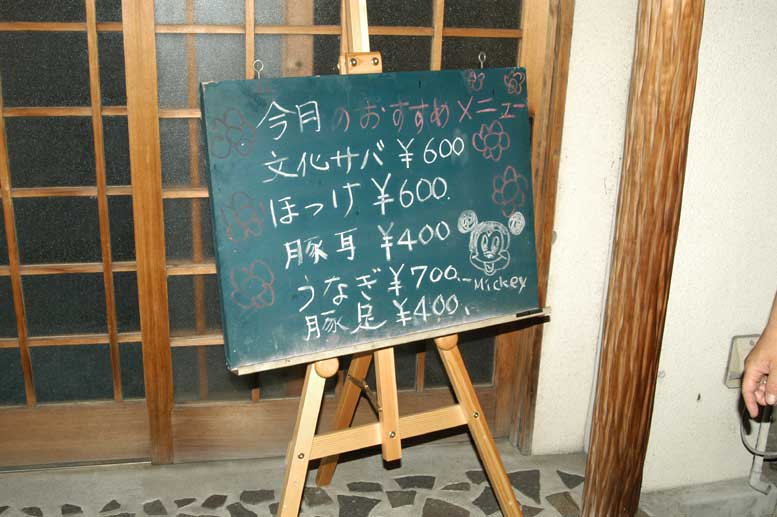 今月のおすすめメニュー
文化サバ ¥600
ほっけ ¥600.
豚耳 ¥400
うなぎ ¥700.-
豚足 ¥400.
Mickey